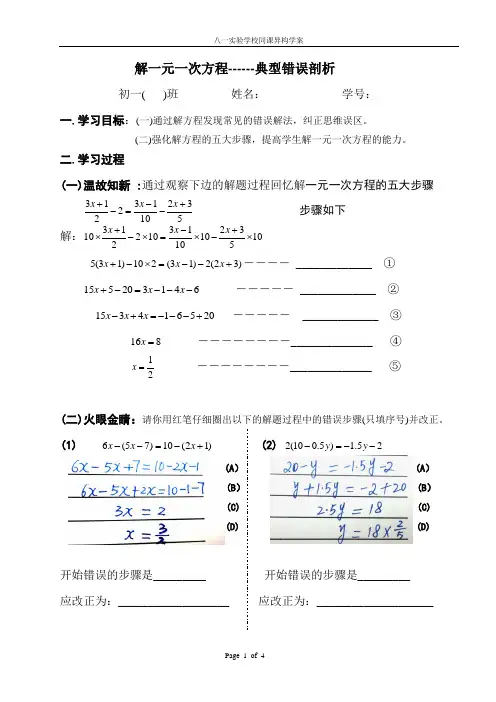 八一实验学校同课异构学案
解一元一次方程------典型错误剖析
初一( )班 姓名： 学号：
一.学习目标：(一)通过解方程发现常见的错误解法，纠正思维误区。
(二)强化解方程的五大步骤，提高学生解一元一次方程的能力。
二.学习过程
(一)温故知新 :通过观察下边的解题过程回忆解一元一次方程的五大步骤
(3x+1)/2 − 2 = (3x−1)/10 − (2x+3)/5 步骤如下
解: 10×(3x+1)/2 − 2×10 = (3x−1)/10 ×10 − (2x+3)/5 ×10
5(3x+1)−10×2=(3x−1)−2(2x+3)－－－－ ______________ ①
15x+5−20=3x−1−4x−6 －－－－－ ______________ ②
15x−3x+4x=−1−6−5+20 －－－－－ ______________ ③
16x=8 －－－－－－－－______________ ④
x=1/2 －－－－－－－－______________ ⑤
(二)火眼金睛：请你用红笔仔细圈出以下的解题过程中的错误步骤(只填序号)并改正。
(1) 6x−(5x−7)=10−(2x+1) (2) 2(10−0.5y)=−1.5y−2
6x−5x+7=10−2x−1 (A) 20−y=−1.5y−2 (A)
6x−5x+2x=10−1−7 (B) y+1.5y=−2+20 (B)
3x=2 (C) 2.5y=18 (C)
x=3/2 (D) y=18×2/5 (D)
开始错误的步骤是_________ 开始错误的步骤是_________
应改正为：___________________ 应改正为：____________________
Page 1 of 4